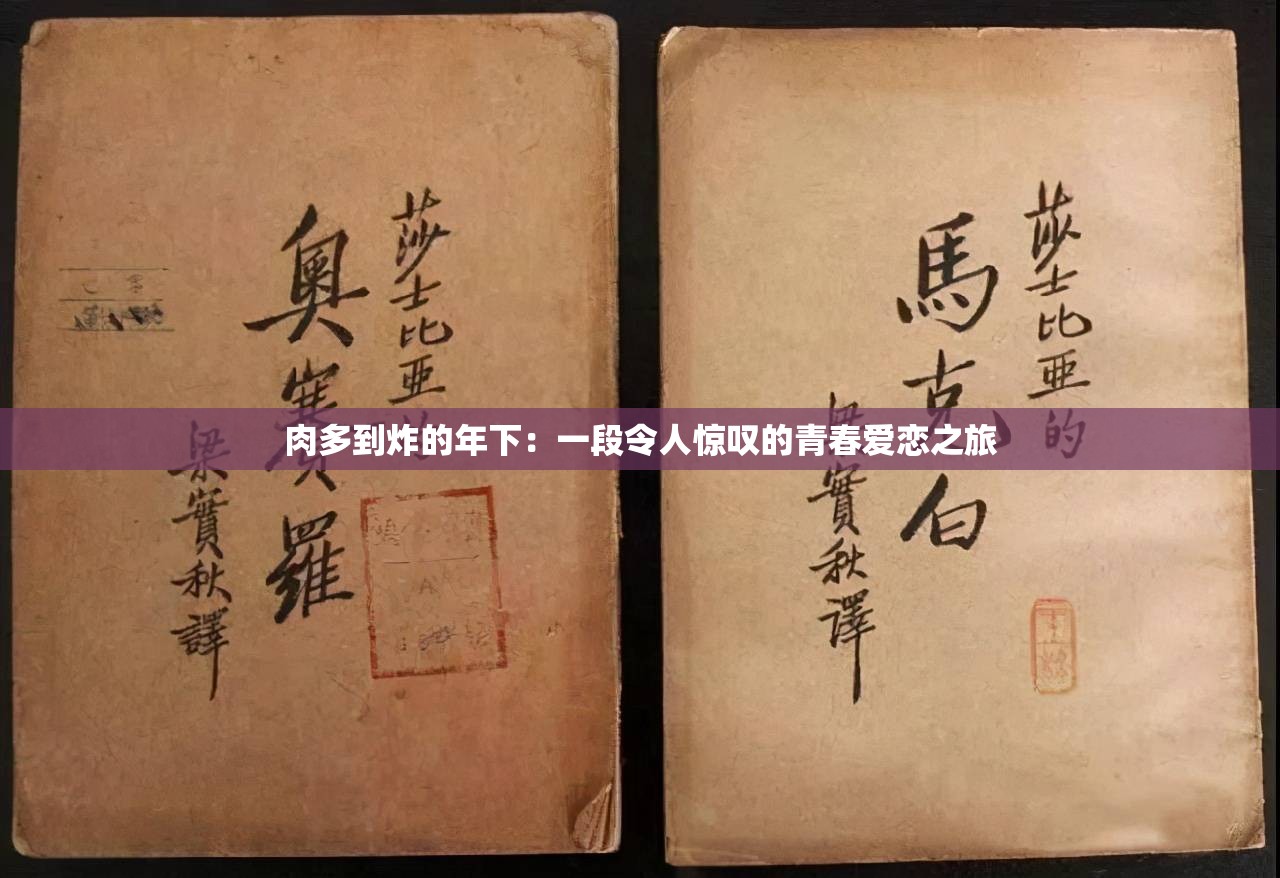 莎士比亚的
奥賽羅
梁實秋譯
莎士比亚的
馬克白
梁實秋譯
肉多到炸的年下：一段令人惊叹的青春爱恋之旅